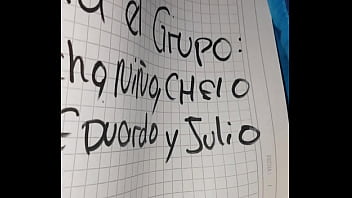 el GRUPO:
Niña CHElO
EDUardo y Julio